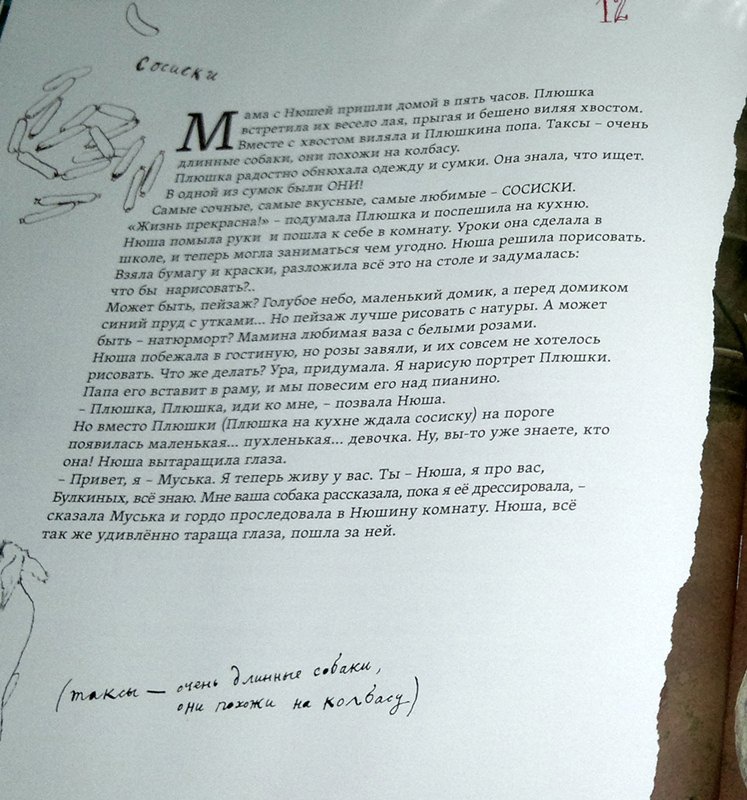 12
сосиски
Мама с Нюшей пришли домой в пять часов. Плюшка
встретила их весело лая, прыгая и бешено виляя хвостом.
Вместе с хвостом виляла и Плюшкина попа. Таксы – очень
длинные собаки, они похожи на колбасу.
Плюшка радостно обнюхала одежду и сумки. Она знала, что ищет.
В одной из сумок были ОНИ!
Самые сочные, самые вкусные, самые любимые – СОСИСКИ.
«Жизнь прекрасна!» – подумала Плюшка и поспешила на кухню.
Нюша помыла руки и пошла к себе в комнату. Уроки она сделала в
школе, и теперь могла заниматься чем угодно. Нюша решила порисовать.
Взяла бумагу и краски, разложила всё это на столе и задумалась:
что бы нарисовать?..
Может быть, пейзаж? Голубое небо, маленький домик, а перед домиком
синий пруд с утками... Но пейзаж лучше рисовать с натуры. А может
быть – натюрморт? Мамина любимая ваза с белыми розами.
Нюша побежала в гостиную, но розы завяли, и их совсем не хотелось
рисовать. Что же делать? Ура, придумала. Я нарисую портрет Плюшки.
Папа его вставит в раму, и мы повесим его над пианино.
– Плюшка, Плюшка, иди ко мне, – позвала Нюша.
Но вместо Плюшки (Плюшка на кухне ждала сосиску) на пороге
появилась маленькая... пухленькая... девочка. Ну, вы-то уже знаете, кто
она! Нюша вытаращила глаза.
– Привет, я – Муська. Я теперь живу у вас. Ты – Нюша, я про вас,
Булкиных, всё знаю. Мне ваша собака рассказала, пока я её дрессировала, –
сказала Муська и гордо проследовала в Нюшину комнату. Нюша, всё
так же удивлённо тараща глаза, пошла за ней.
(таксы — очень длинные собаки,
они похожи на колбасу)